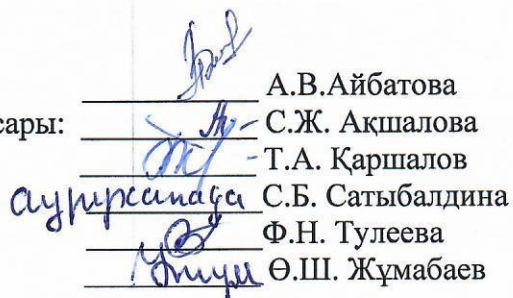 А.В.Айбатова
сары: С.Ж. Ақшалова
Т.А. Қаршалов
ауруханада С.Б. Сатыбалдина
Ф.Н. Тулеева
Ө.Ш. Жұмабаев